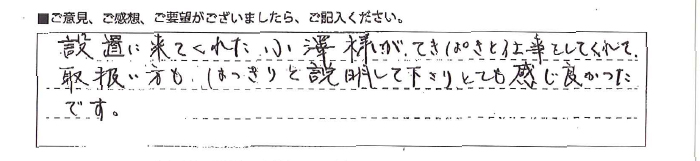 ■ご意見、ご感想、ご要望がございましたら、ご記入ください。
設置に来てくれた小澤様が、てきぱきと仕事をしてくれて、
取扱い方も、はっきりと説明して下さりとても感じ良かった
です。